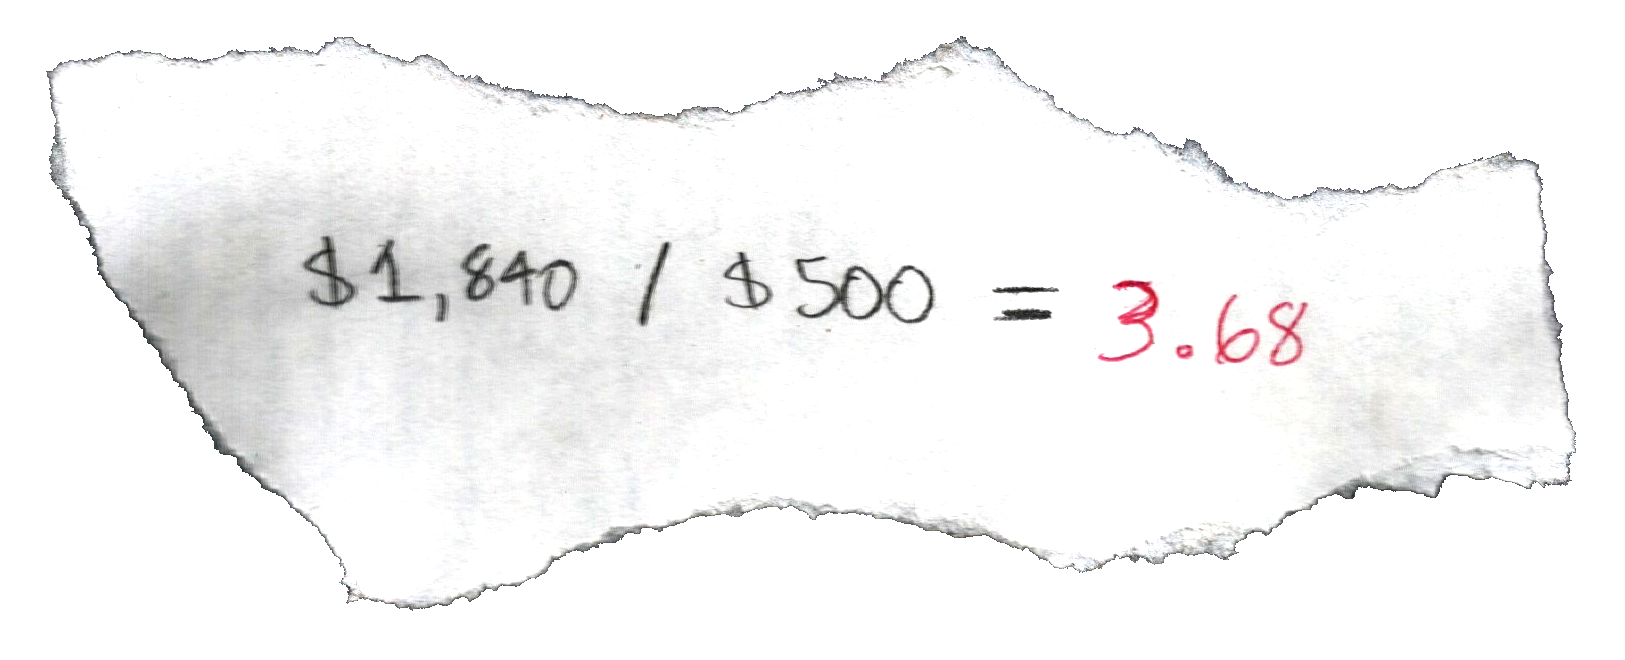 $1,840 / $500 = 3.68